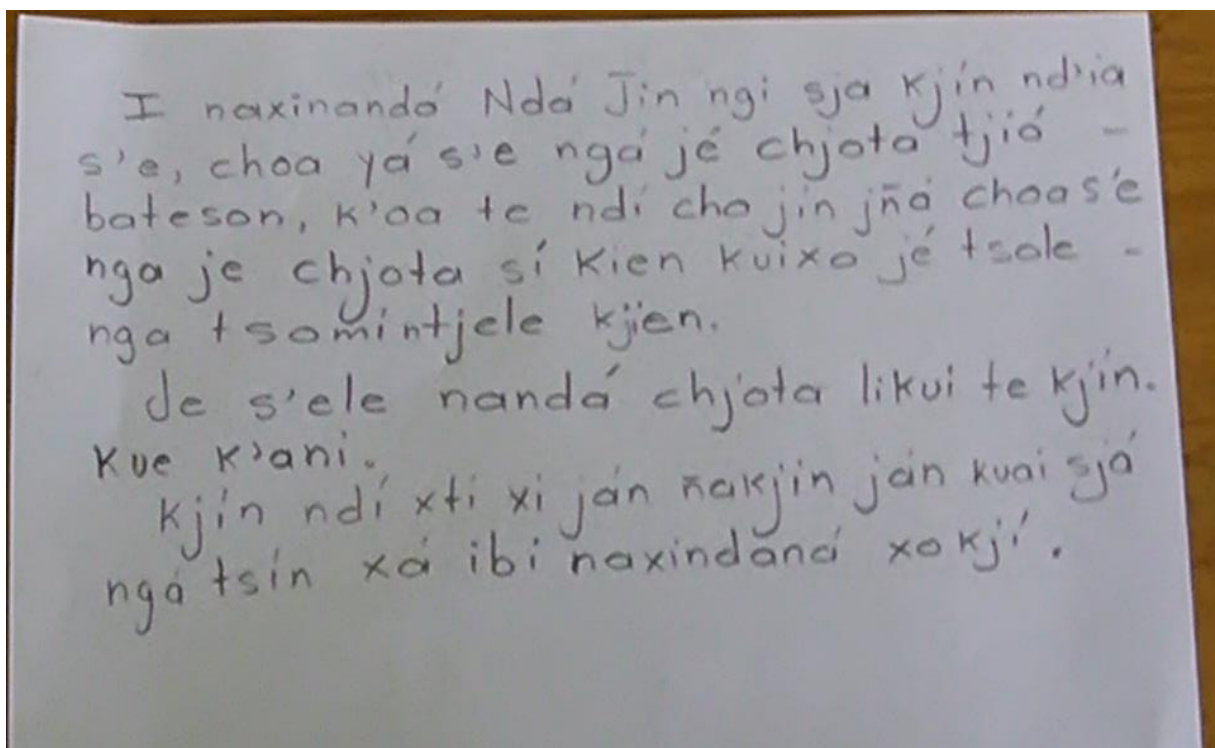 I naxinandá Ndá Jin ngi sja kjín nd'ia
s'e, choa yá s'e ngá jé chjota tjió -
bateson, k'oa te ndí cho jín jñá choas'e
nga je chjota sí kien kuixo jé tsole -
nga tsomintjele kjien.
Je s'ele nandá chjota likui te kjín.
Kue k'ani.
Kjín ndí xti xi ján ñakjin ján kuai sjá
ngá tsín xá ibi naxindáná xokjí.